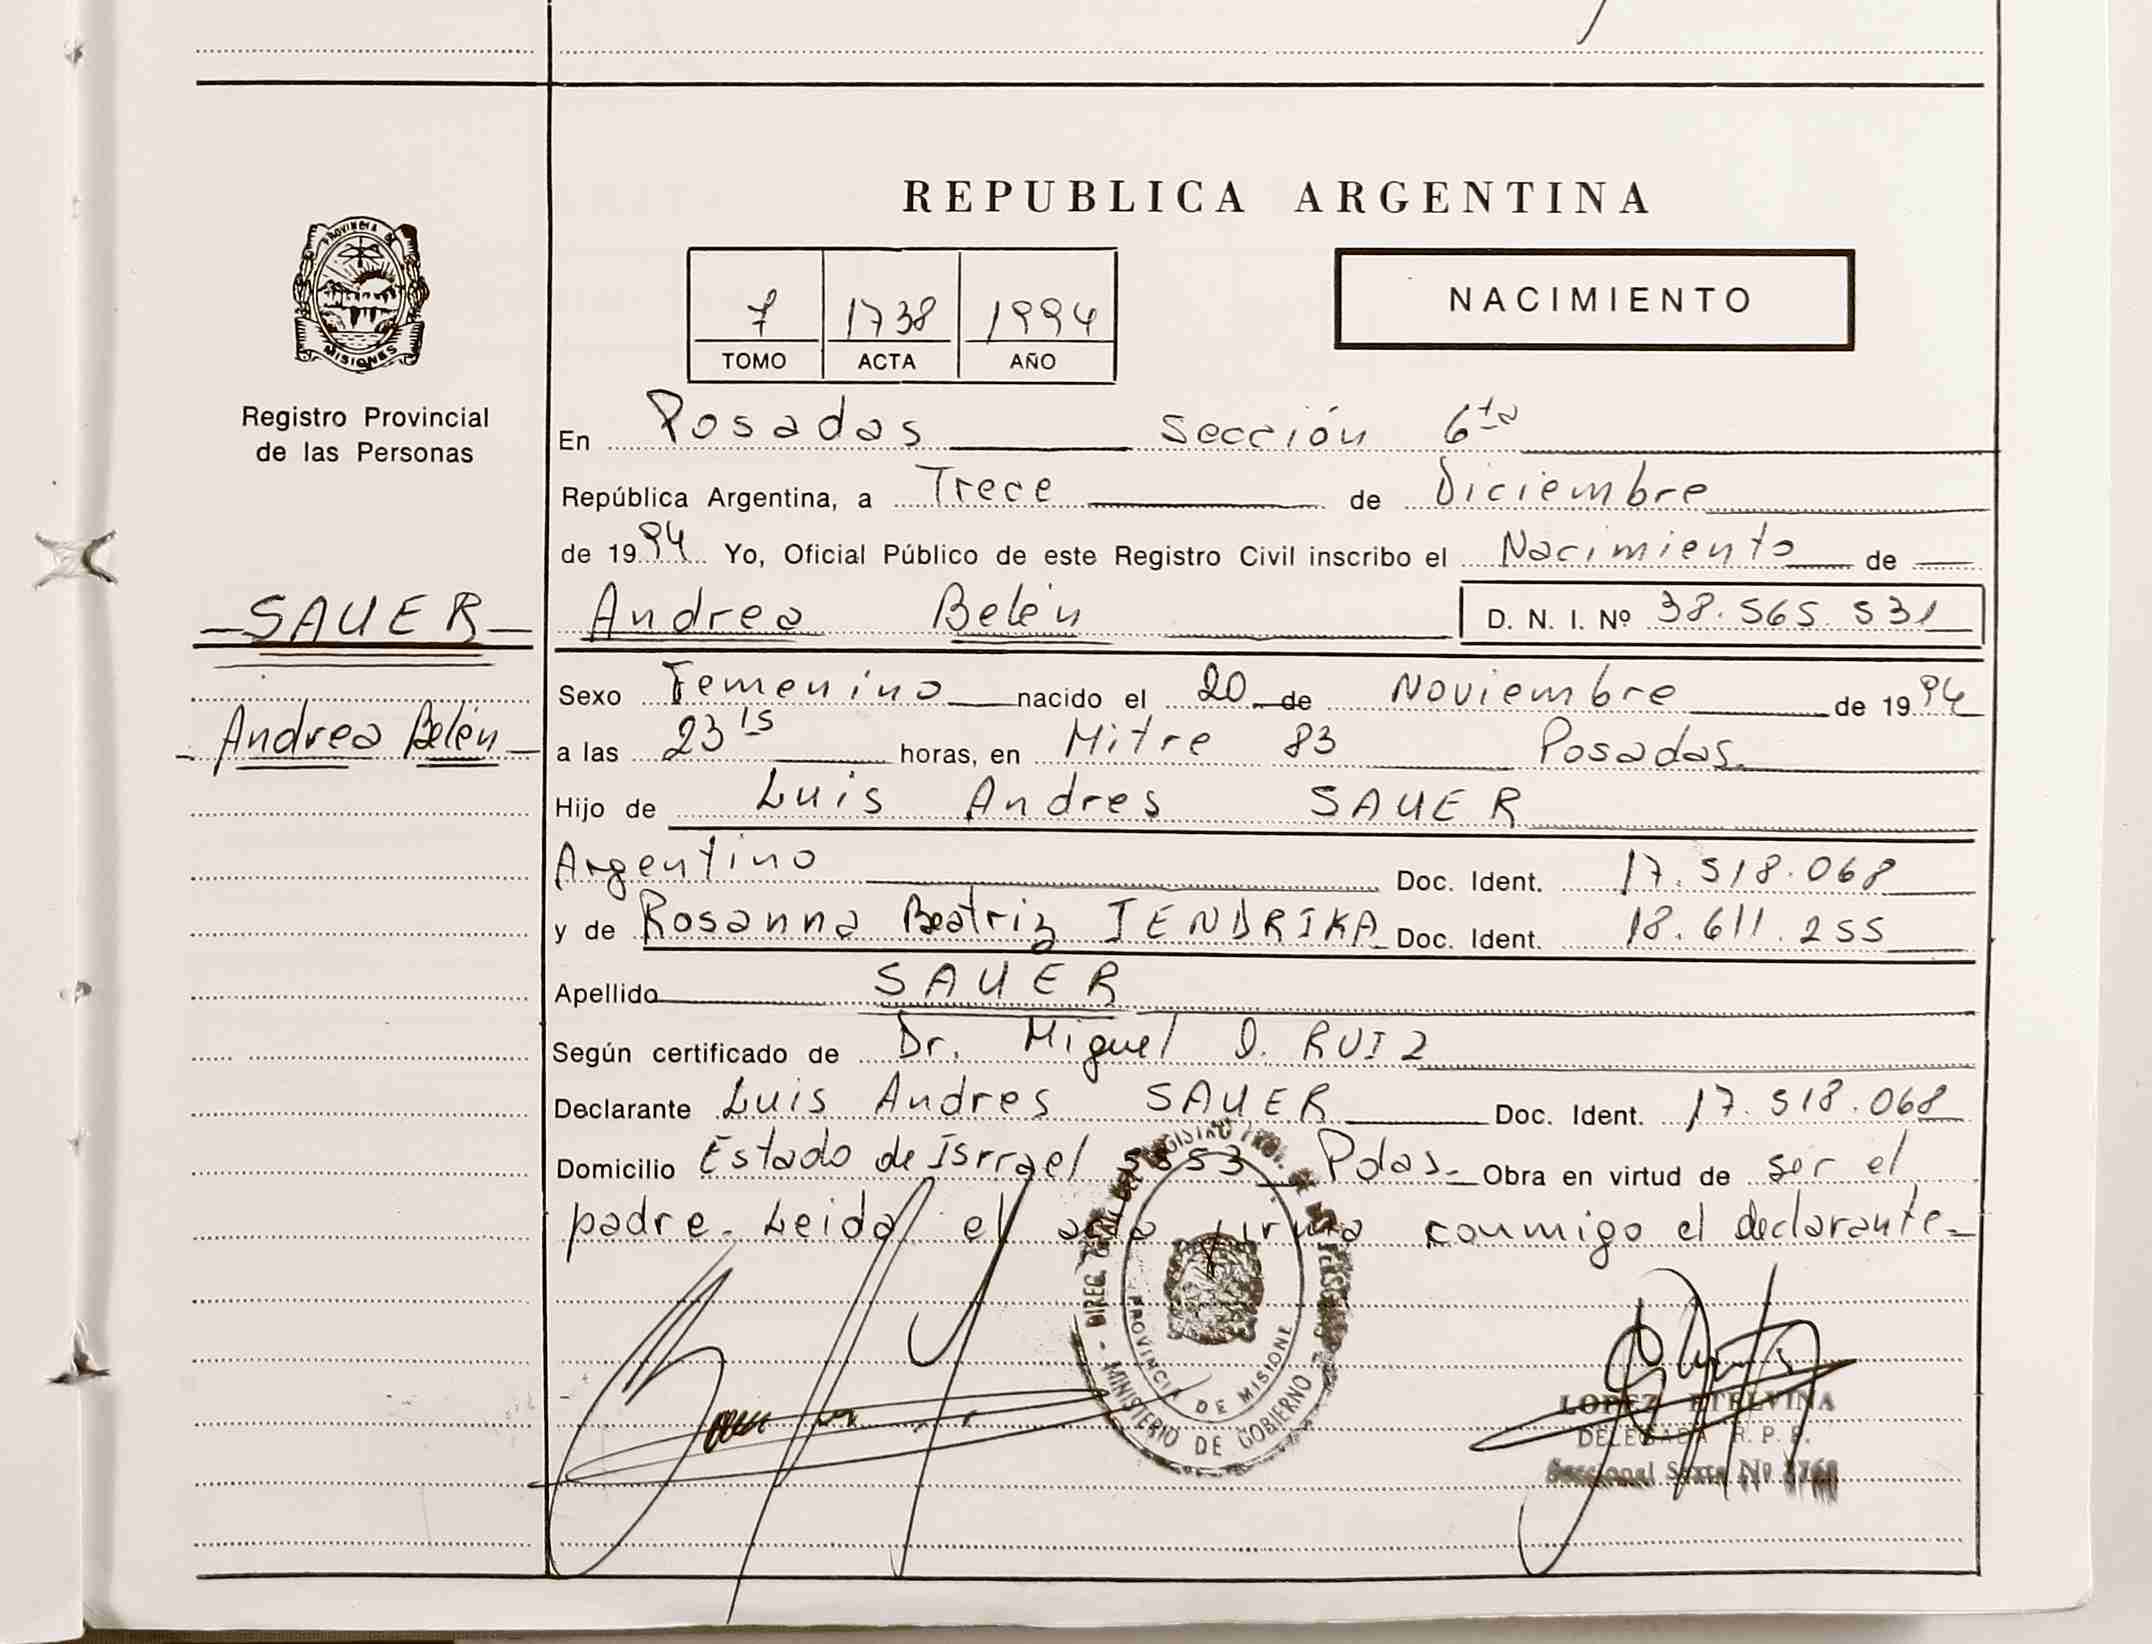 REPUBLICA ARGENTINA
PROVINCIA DE
MISIONES
Registro Provincial
de las Personas
NACIMIENTO
7 1738 1994
TOMO ACTA AÑO
En Posadas Sección 6ta
República Argentina, a Trece de Diciembre
de 1994 Yo, Oficial Público de este Registro Civil inscribo el Nacimiento de
SAUER
Andrea Belén
Andrea Belén D. N. I. Nº 38.565.531
Sexo Femenino nacido el 20 de Noviembre de 1994
a las 23 15 horas, en Mitre 83 Posadas.
Hijo de Luis Andres SAUER
Argentino Doc. Ident. 17.518.068
y de Rosanna Beatriz JENDRIKA Doc. Ident. 18.611.255
Apellido SAUER
Según certificado de Dr. Miguel D. RUIZ
Declarante Luis Andres SAUER Doc. Ident. 17.518.068
Domicilio Estado de Isrrael Pdas. Obra en virtud de ser el
padre. Leida el acta firma conmigo el declarante
PROVINCIA DE MISIONE
MINISTERIO DE GOBIERNO
LOPEZ ETELVINA
DELEGADA R. P. P.
Seccional Sexta Nº